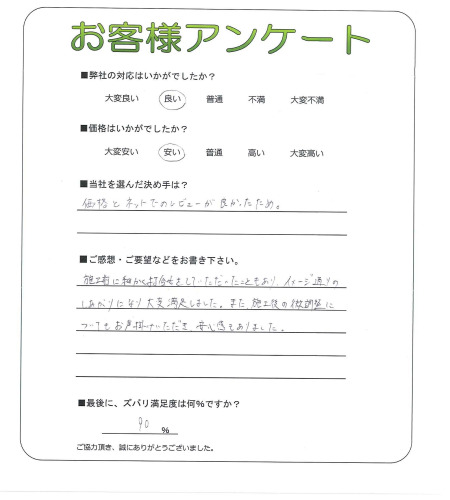 お客様アンケート
■弊社の対応はいかがでしたか？
大変良い 良い 普通 不満 大変不満
■価格はいかがでしたか？
大変安い 安い 普通 高い 大変高い
■当社を選んだ決め手は？
価格とネットでのレビューが良かったため。
■ご感想・ご要望などをお書き下さい。
施工前に細かく打合せをしていただいたこともあり、イメージ通りの
しあがりになり大変満足しました。また、施工後の微調整に
ついてもお声掛けいただき、安心感もありました。
■最後に、ズバリ満足度は何%ですか？
90 %
ご協力頂き、誠にありがとうございました。